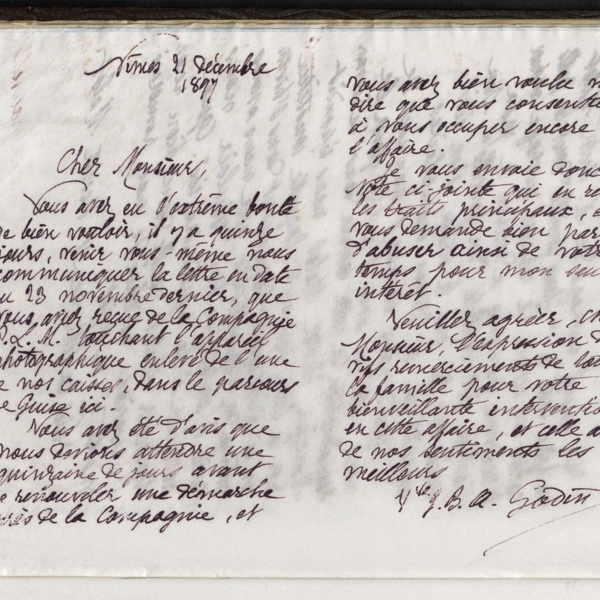 Nîmes 21 décembre
1897
Cher Monsieur,
Vous avez eu l'extrême bonté
de bien vouloir, il y a quinze
jours, venir vous-même nous
communiquer la lettre en date
du 23 novembre dernier, que
vous avez reçue de la Compagnie
P.L.M. touchant l'appareil
photographique enlevé de l'une
de nos caisses, dans le parcours
de Guise ici.
Vous avez été d'avis que
nous devions attendre une
quinzaine de jours avant
de renouveler une démarche
près de la Compagnie, et
vous avez bien voulu m
dire que vous consentie
à vous occuper encore
l'affaire.
Je vous envoie donc
note ci-jointe qui en re
les traits principaux, e
vous demande bien par
d'abuser ainsi de votr
temps pour mon seu
intérêt.
Veuillez agréer, ch
Monsieur, l'expression d
vifs remerciements de tou
la famille pour votre
bienveillante interventio
en cette affaire, et celle a
de nos sentiments les
meilleurs
Vve J. B. A. Godin